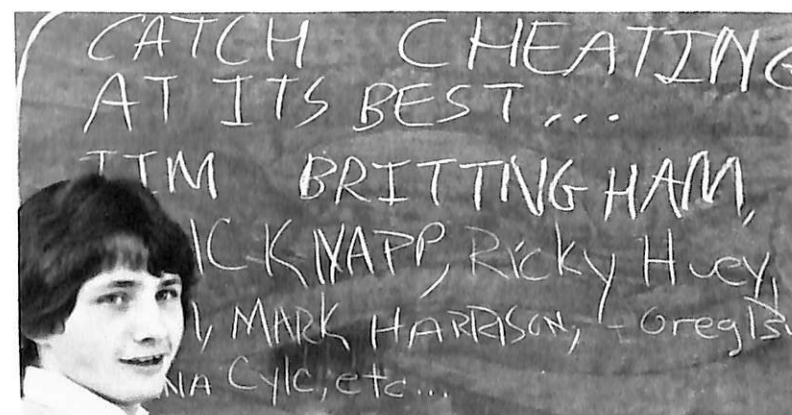 CATCH CHEATING
AT ITS BEST...
BRITTNGHAM,
KNAPP, Ricky Huey,
MARK HARRISON, -Greg
Cylc, etc...